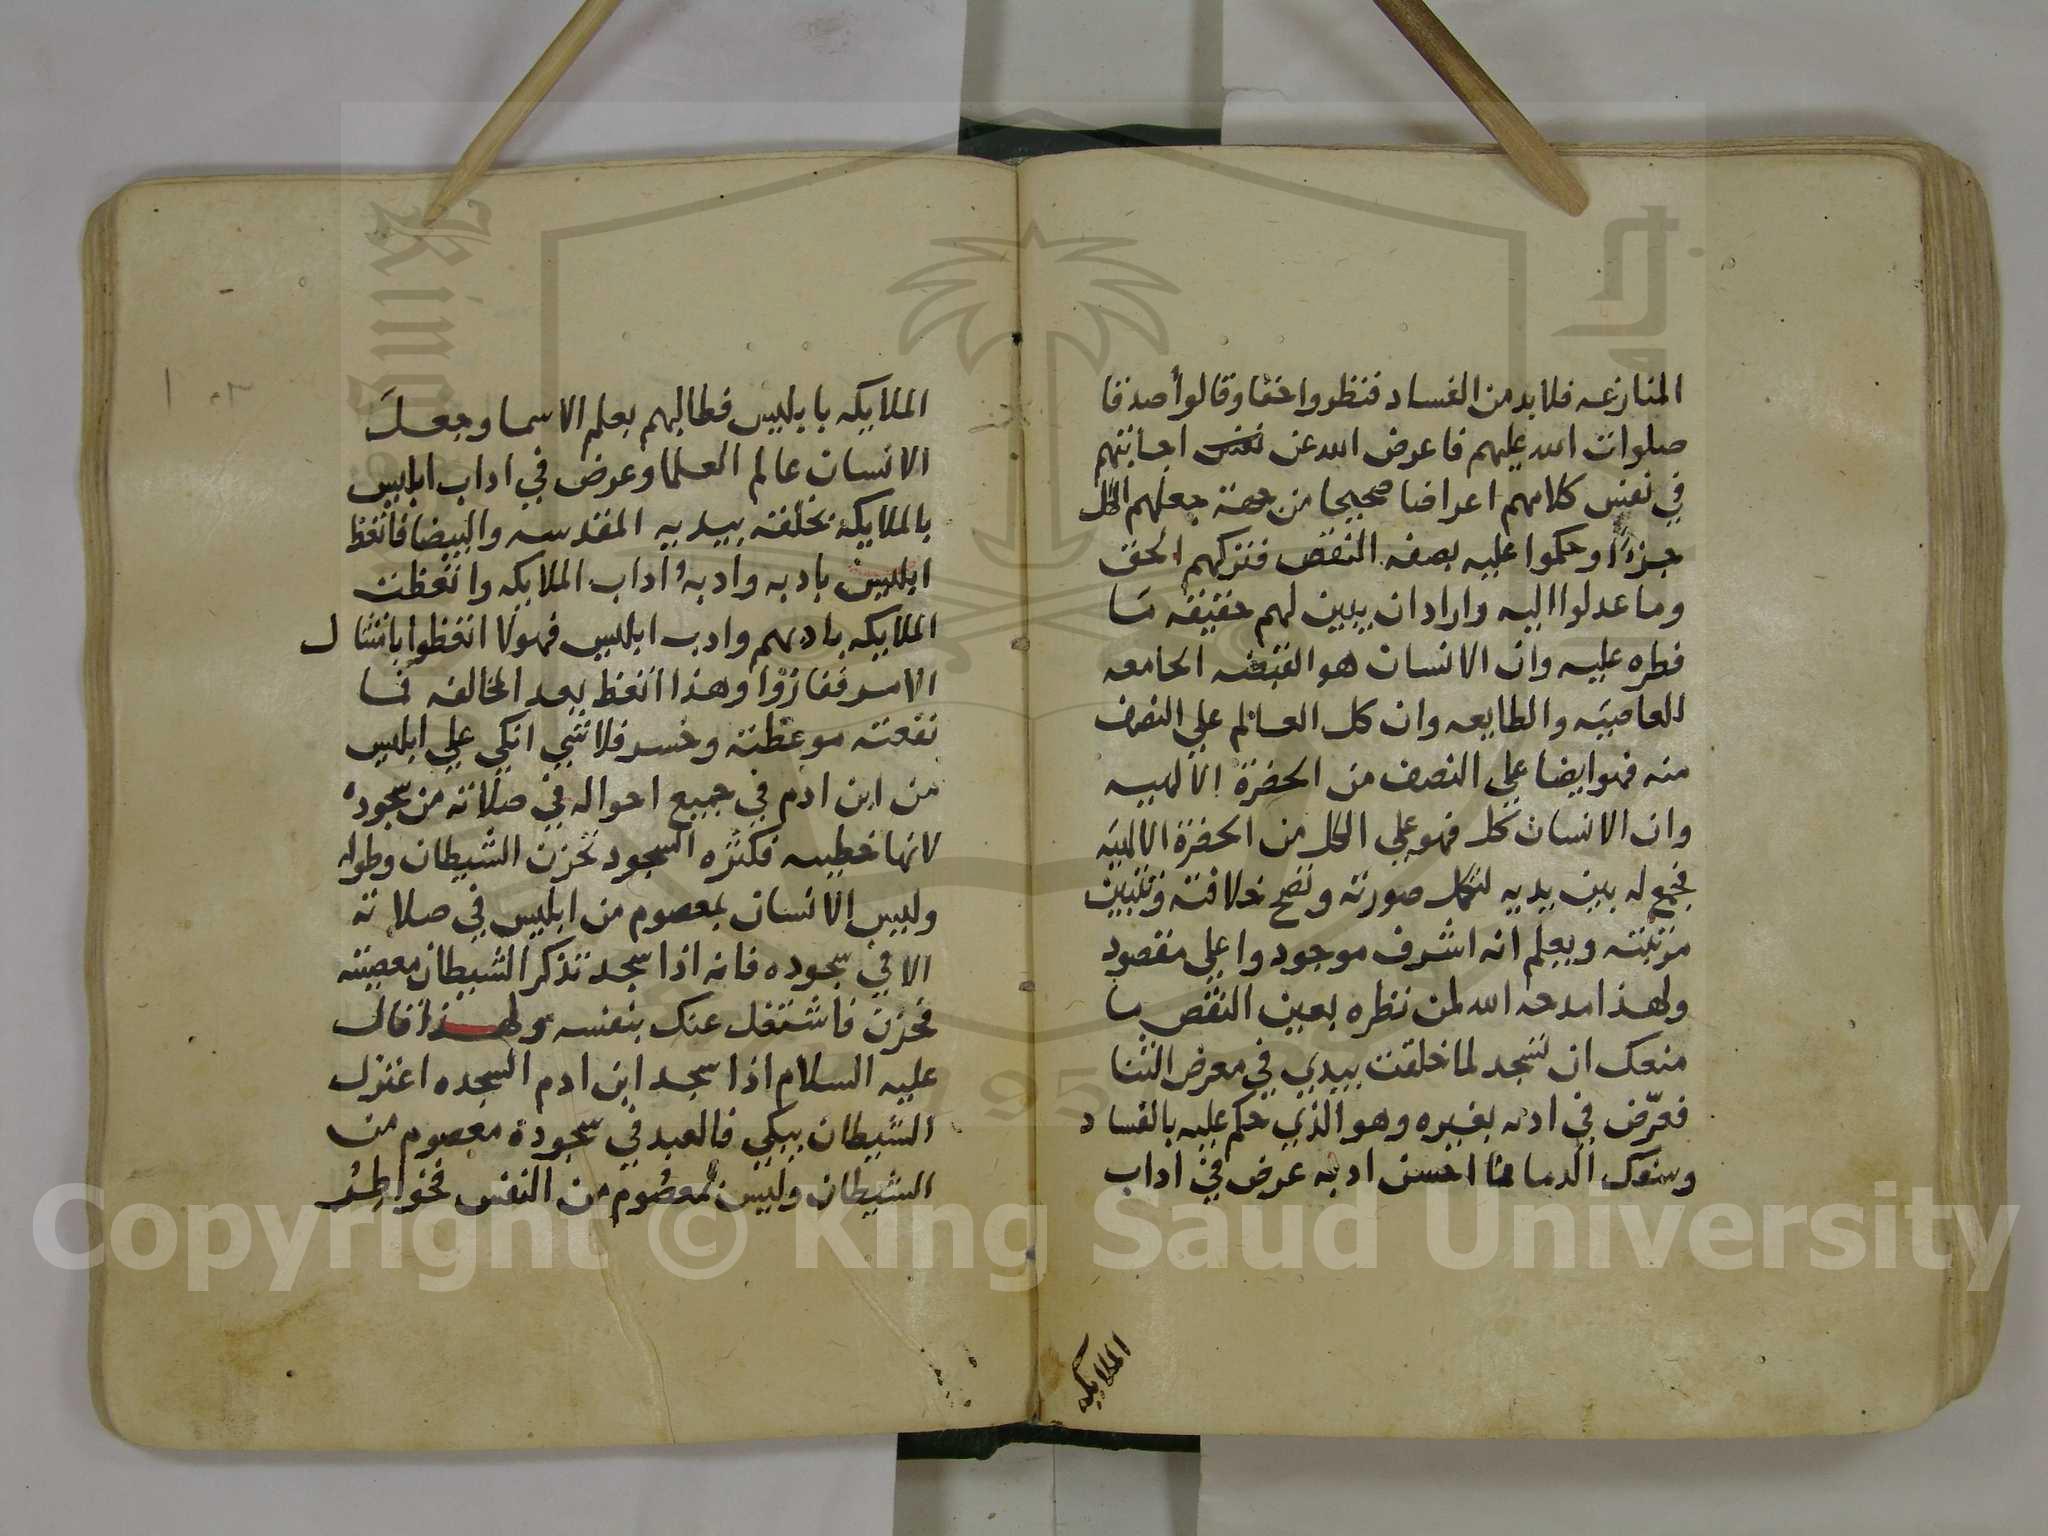 المنازعه فلابد من الفساد فنظروا حقا وقالوا صدقا
صلوات الله عليهم فاعرض الله عن نفس اجابتهم
في نفس كلامهم اعراضا صحيحا من جهة جعلهم الكل
جزءا وحكموا عليه بصفه النقص فتركهم الحق
وما عدلوا اليه واراد ان يبين لهم حقيقه ما
فطره عليه وان الانسان هو القبضه الجامعه
العاصيه والطايعه وان كل العالم علي النصف
منه فهو ايضا علي النصف من الحضرة الالهيه
وان الانسان كل فهو علي الكل من الحضرة الالهيه
فجمع له بين يديه لتكمل صورته وتصح خلافته وتتبين
مرتبته ويعلم انه اشرف موجود واعلي مقصود
ولهذا مدحه الله لمن نظره بعين النقص ما
منعك ان تسجد لما خلقت بيدي في معرض الثنا
فعرّض في ادبه بغيره وهو الذي حكم عليه بالفساد
وسفك الدما احسن ادبه عرض في اداب
الملايكه
الملايكه بابليس فطالبهم بعلم الاسما وجعل
الانسان عالم العلما وعرض في اداب ابليس
بالملايكة بخلقته بيديه المقدسه والبيضا فاتعظ
ابليس بادبه وادبه اداب الملايكه واتعظت
الملايكه بادبهم وادب ابليس فهولا اتعظوا بامتثال
الامر ففازوا وهذا اتعظ بعد المخالفه فما
نفعته موعظته وخسر فلا شي انكي علي ابليس
من ابن ادم في جميع احواله في صلاته من سجوده
لانها خطيه فكثره السجود تحزن الشيطان وطوله
وليس الانسان بمعصوم من ابليس في صلاته
الا في سجوده فانه اذا سجد تذكر الشيطان معصيته
فحزن فاشتغل عنك بنفسه ولهذا قال
عليه السلام اذا سجد ابن ادم السجده اعتزل
الشيطان يبكي فالعبد في سجوده معصوم من
الشيطان وليس بمعصوم من النفس فخواطر
Copyright © King Saud University
1957